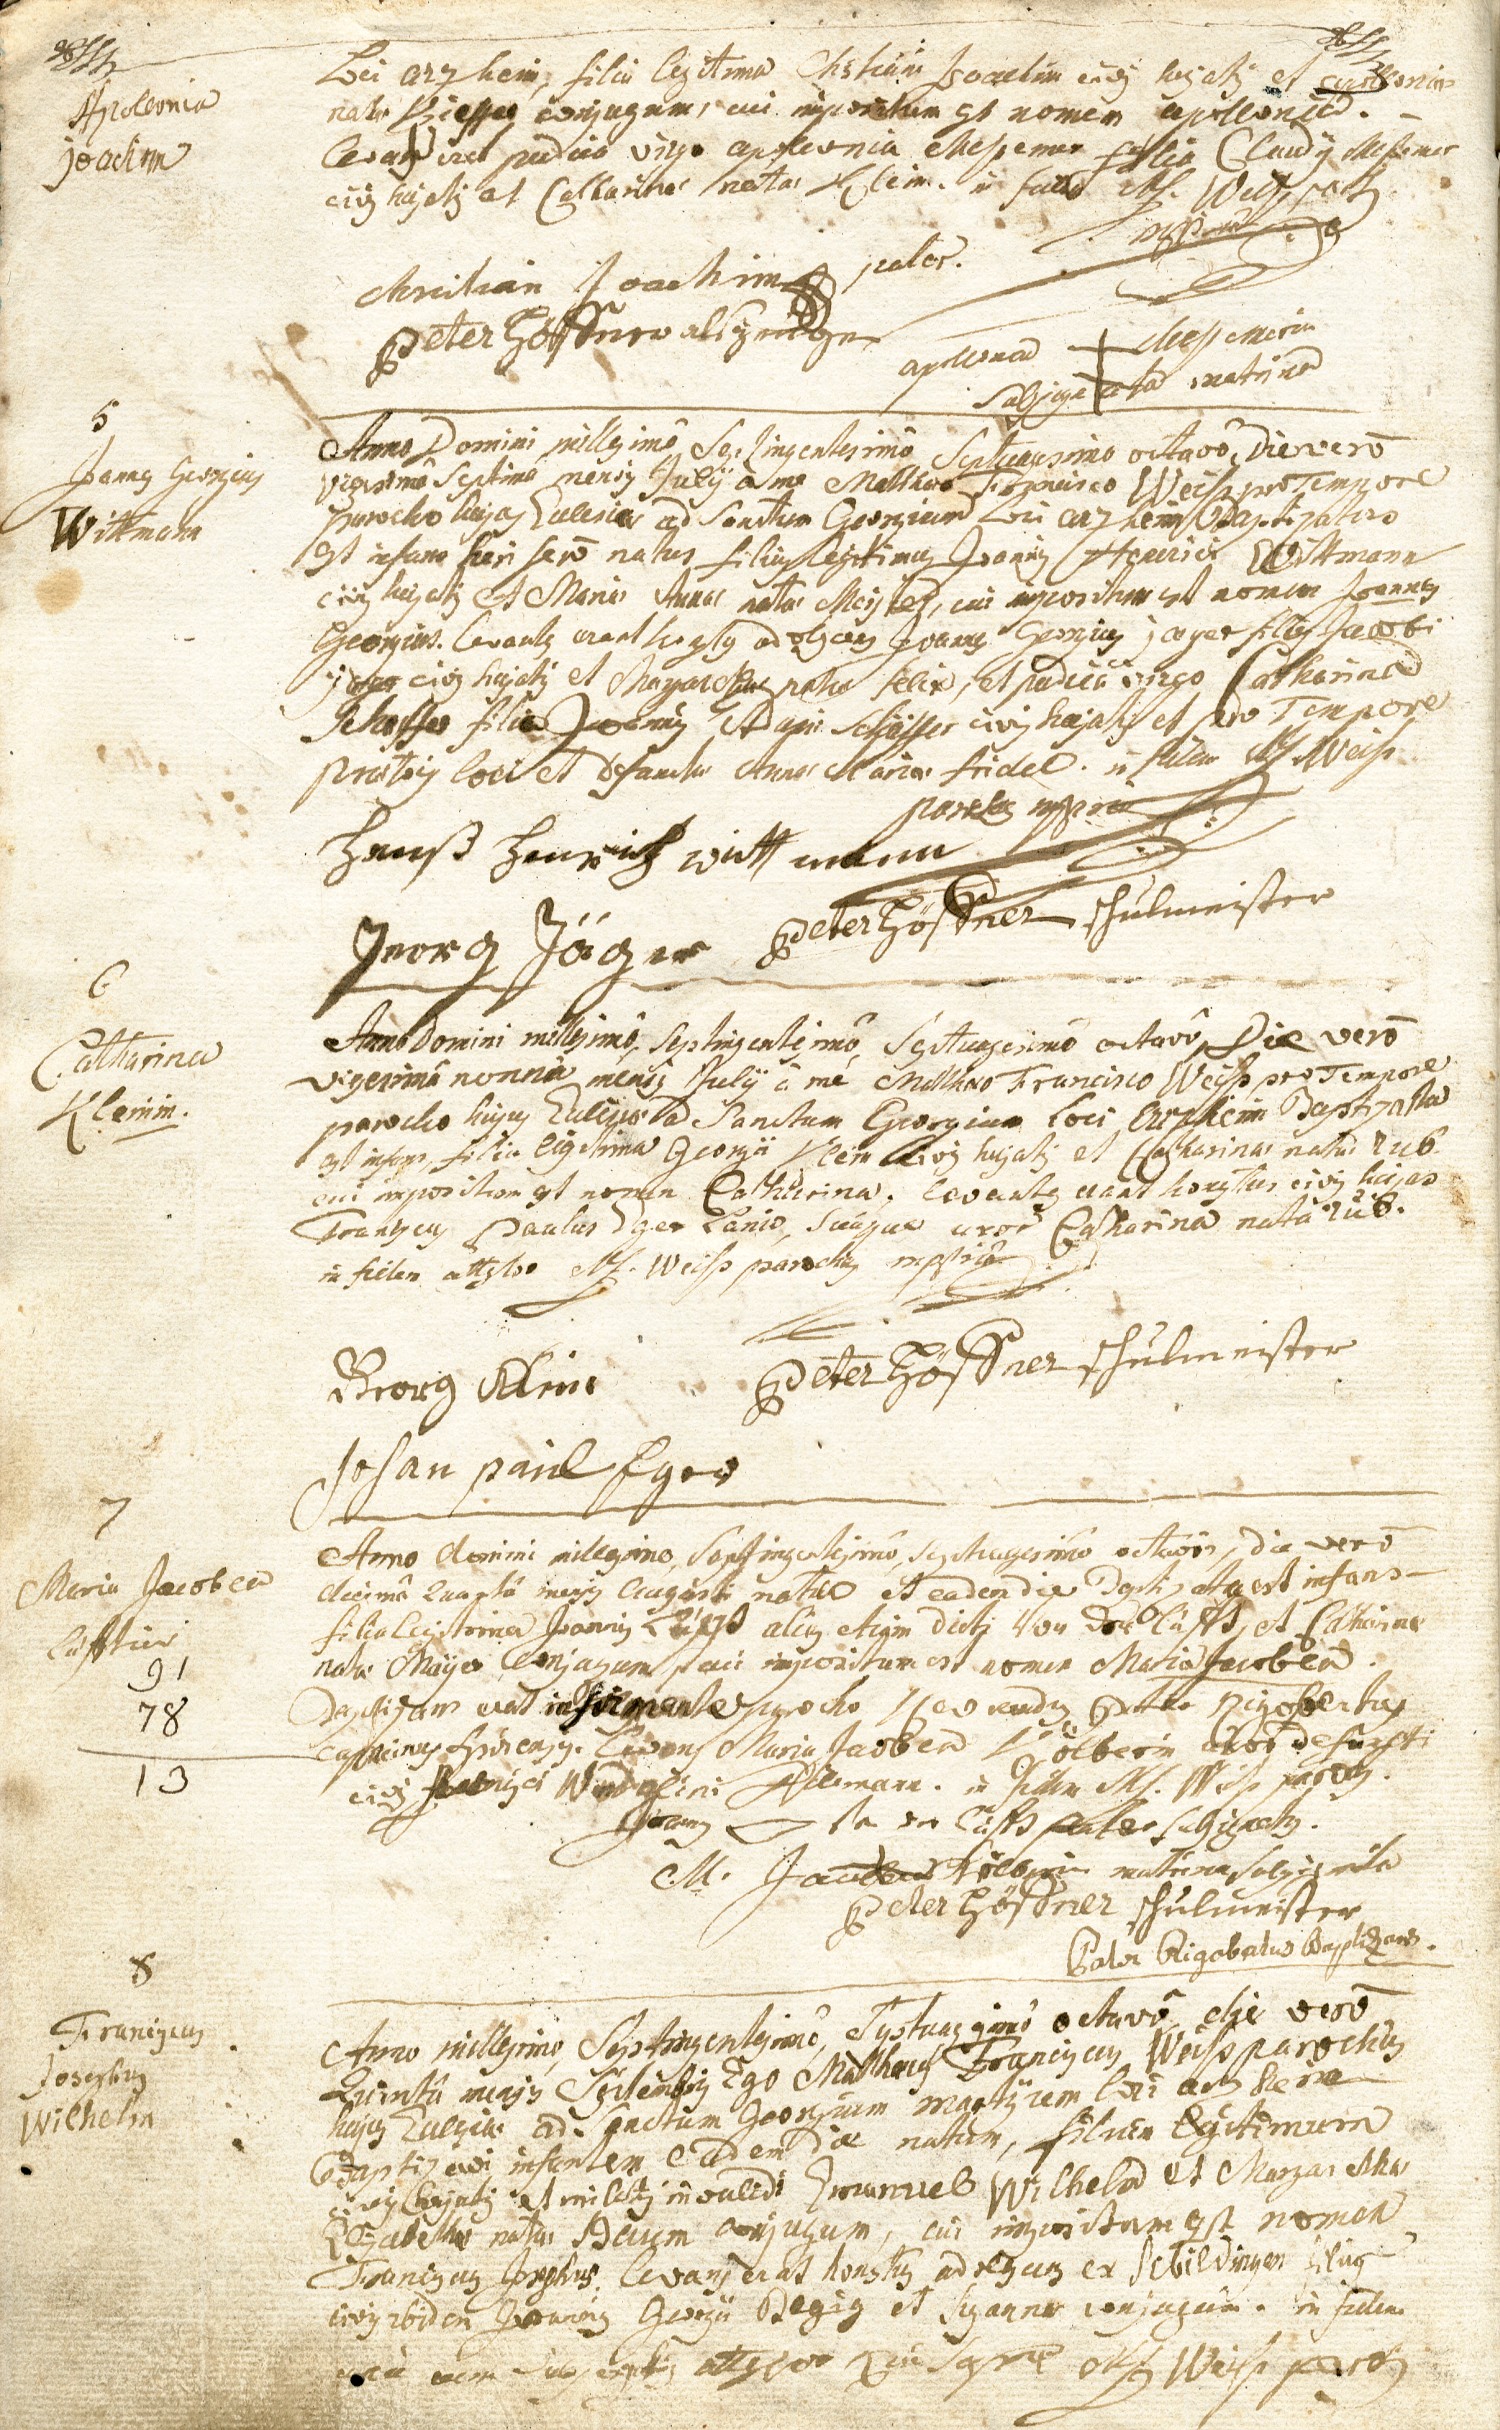 Apoleonia
Joachim
Loci arzheim, filia legitima Christiani Joachim civis hujatis et
natæ conjugum, cui impositum est nomen apolloniæ.
Levans erat pudica virgo apolonia Messemer filia Claudij Messemer
civis hujatis et Catharinæ natæ Klein. in fidem M. F. Weiss paroch
mppria
christian Joachim pater.
Peter Höffner als zeüge
apolonia + Messemerin
matrina
5
Joannes Georgius
Wittmann
Anno Domini millesimô Septingentesimô Septuagesimo octavô, Die verô
vigesimâ Septima mensis Julÿ â me Matthæo Francisco Weiss pro Tempore
parocho hujas Ecclesiæ ad Sanctum Georgium Loci arzheim Baptizatus
est infans heri serô natus filius legitimus Joannis Henrici Wittmann
civis hujatis et Mariæ Annæ natæ Meister, cui impositum est nomen Joannes
Georgius. Levantes erant honestus adolescens Joannes Georgius jager filius Jacobi
jager civis hujatis et Margarethæ natæ felix, et pudica virgo Catharina
Scheffer filia Joannis Adami Scheffer civis hujatis et pro Tempore
prætoris loci et defunctæ Annæ Mariæ fridel. in fidem M. F. Weiss
parochus mppria
Hanß Henrich wittmann
Georg Jäger Peter Höffner schulmeister
6
Catharina
Klein.
Anno Domini millesimô, Septingentesimô, Septuagesimô octavô, Die verô
vigesimâ nonnâ mensis Julÿ â mé Matthæo Francisco Weiss pro Tempore
parocho hujus Ecclesiæ ad Sanctum Georgium Loci Arzheim Baptizata
est infans, filia legitima Georgii Klein civis hujatis et Catharinæ natæ Rub
cui impositum est nomen Catharina. levantes erant honestus civis hujas
Franciscus Paulus Eger Lanio, suaque uxor Catharina nata Rüb.
in fidem attestor M. F. Weiss parochus mppria
Georg Klein Peter Höffner schulmeister
Johan paul Eger
7
Maria Jacobea
Lufftin
91
78
13
Anno domini millesimo, Septingentesimô, septuagesimô octavô, die verô
decimâ quartâ mensis Augusti nata et eadem die Baptizata est infans
filia legitima Joannis Lufft alias etiam dicti von der Lufft, et Catharinæ
natæ Mayer Conjugum, cui impositum est nomen Maria Jacobea.
Baptizans erat parocho Reverendus Pater Rigobertus
capucinus spirensis. Levans Maria Jacobea Kölberin uxor defuncti
civis Wendelini. in fidem M. F. Weiss paroch.
Joannes von der Lufft pater
M. Jacobea Kölberin matrina
Peter Höffner schulmeister
Pater Rigobertus Baptizans.
8
Franciscus
Josephus
Wilhelm
Anno millesimo, Septingentesimô, Septuagesimô octavô, die verô
Quintâ mensis Septembris Ego Matthæus Franciscus Weiss parochus
hujus Ecclesiæ ad Sanctum Georgium martÿrem loci arzheim
Baptizavi infantem eadem die natum, filium legitimum
civis hujatis et militis invalidi Emanuel Wilhelm et Margarethæ
Elizabethæ natæ conjugum, cui impositum est nomen
Franciscus Josephus. Levans erat honestus adolescens ex Schildingen filius
civis ibidem Joannis Georgii et Susannæ conjugum. in fidem
attestor M. F. Weiss paroch